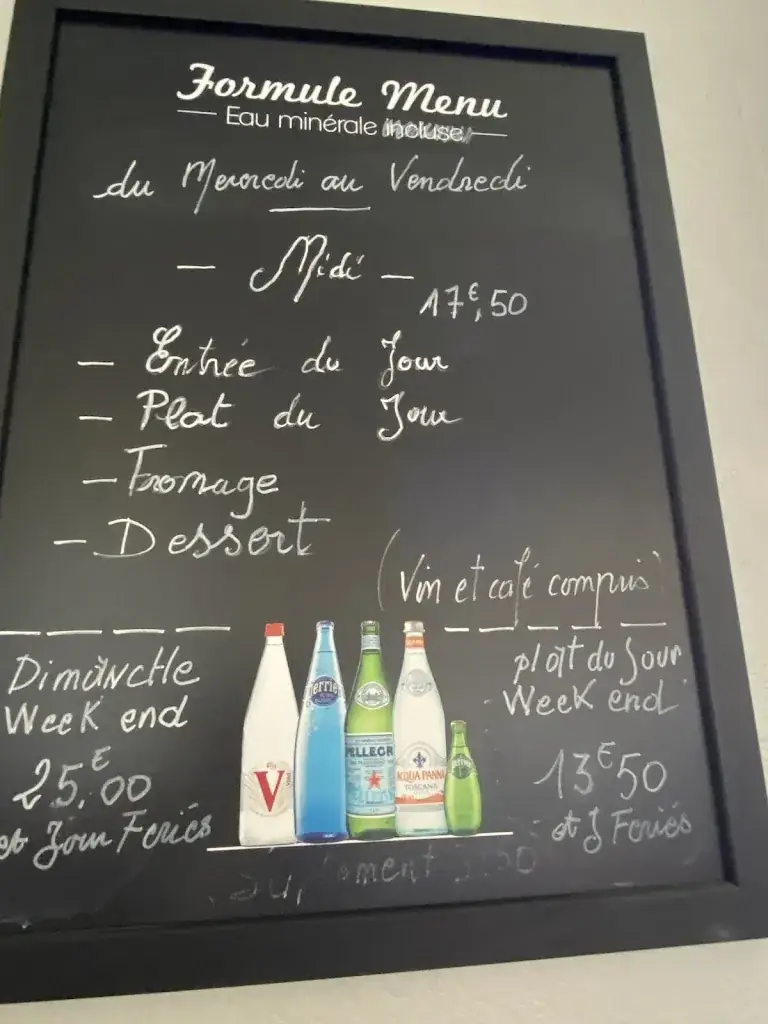 Formule Menu
Eau minérale incluse
du Mercredi au Vendredi
— Midi —
17€,50
— Entrée du Jour
— Plat du Jour
— Fromage
— Dessert
(Vin et café compris)
Dimanche
Week end
25€,00
et Jour Feriés
plat du Jour
Week end
13€50
et J Feriés
V
Perrier
PELLEGR
ACQUA PANNA
TOSCANA